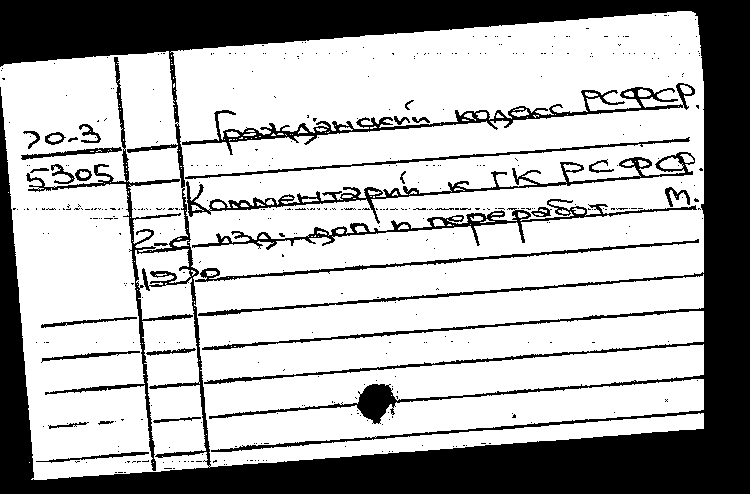 70-3
5305
Гражданский кодекс РСФСР.
Комментарий к ГК РСФСР.
2-е изд., доп. и переработ. М.
1970